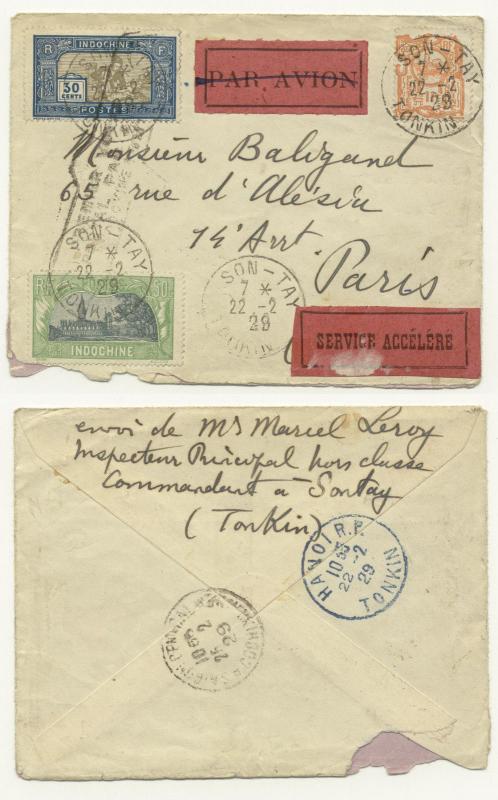 R F
INDOCHINE
30
CENTS
POSTES
PAR AVION
SON-TAY
7 *
22 -2
29
TONKIN
Monsieur Baligand
65 rue d'Alésia
14e Arrt
Paris
SON-TAY
7 *
22 -2
29
TONKIN
SON-TAY
7 *
22 -2
29
TONKIN
INDOCHINE
SERVICE ACCÉLÉRÉ
envoi de Mr Marcel Leroy
Inspecteur Principal hors classe
Commandant à Sontay
(Tonkin)
HANOI R.P.
10
22 -2
29
TONKIN
25
2
29